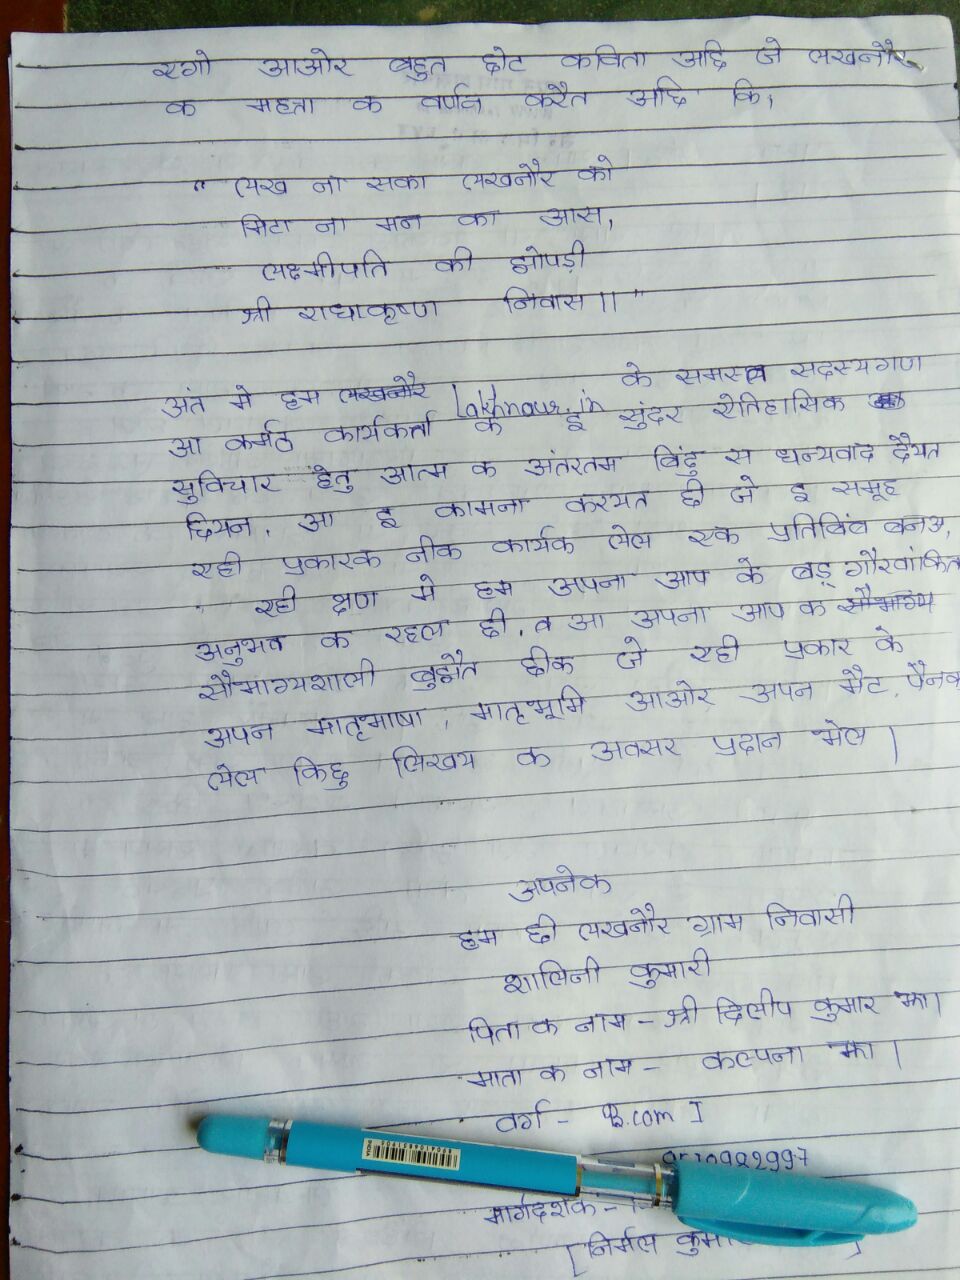 एगो आओर बहुत छोट कविता अछि जे लखनौर
क महता क वर्णन करैत अछि कि,
" लख ना सका लखनौर को
मिटा ना मन का आस,
लक्ष्मीपति की झोपड़ी
श्री राधाकृष्ण निवास।। "
अंत मे हम लखनौर Lakhnaur.in के समस्त सदस्यगण
आ कर्मठ कार्यकर्त्ता के इ सुंदर ऐतिहासिक
सुविचार हेतु आत्म क अंतरतम बिंदु स धन्यवाद दैयत
छियन, आ इ कामना करयत छी जे इ समूह
एही प्रकारक नीक कार्यक लेल एक प्रतिबिंब बनअ,
एही क्षण मे हम अपना आप के बड़ गौरवांकित
अनुभव क रहल छी, व आ अपना आप क
सौभाग्यशाली बुझैत छीक जे एही प्रकार के
अपन मातृभाषा, मातृभूमि आओर अपन मैट, पैनक
लेल किछु लिखय क अवसर प्रदान भेल।
अपनेक
हम छी लखनौर ग्राम निवासी
शालिनी कुमारी
पिता क नाम - श्री दिलीप कुमार झा।
माता क नाम - कल्पना झा।
वर्ग - B.com I
मार्गदर्शक -
[निर्मल